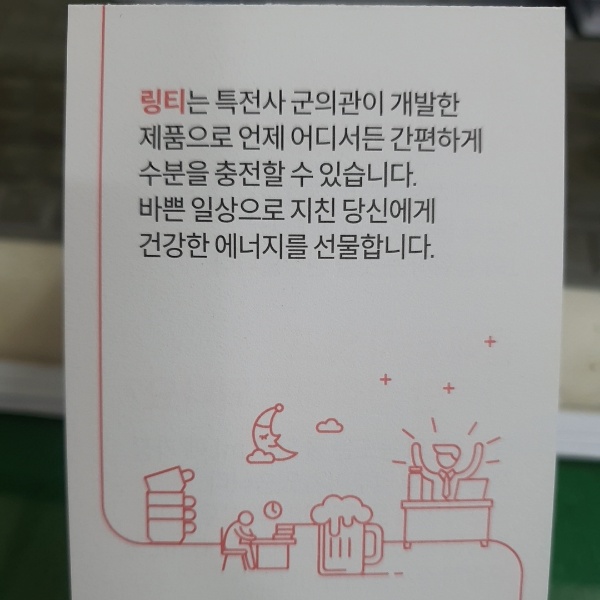 링티는 특전사 군의관이 개발한
제품으로 언제 어디서든 간편하게
수분을 충전할 수 있습니다.
바쁜 일상으로 지친 당신에게
건강한 에너지를 선물합니다.